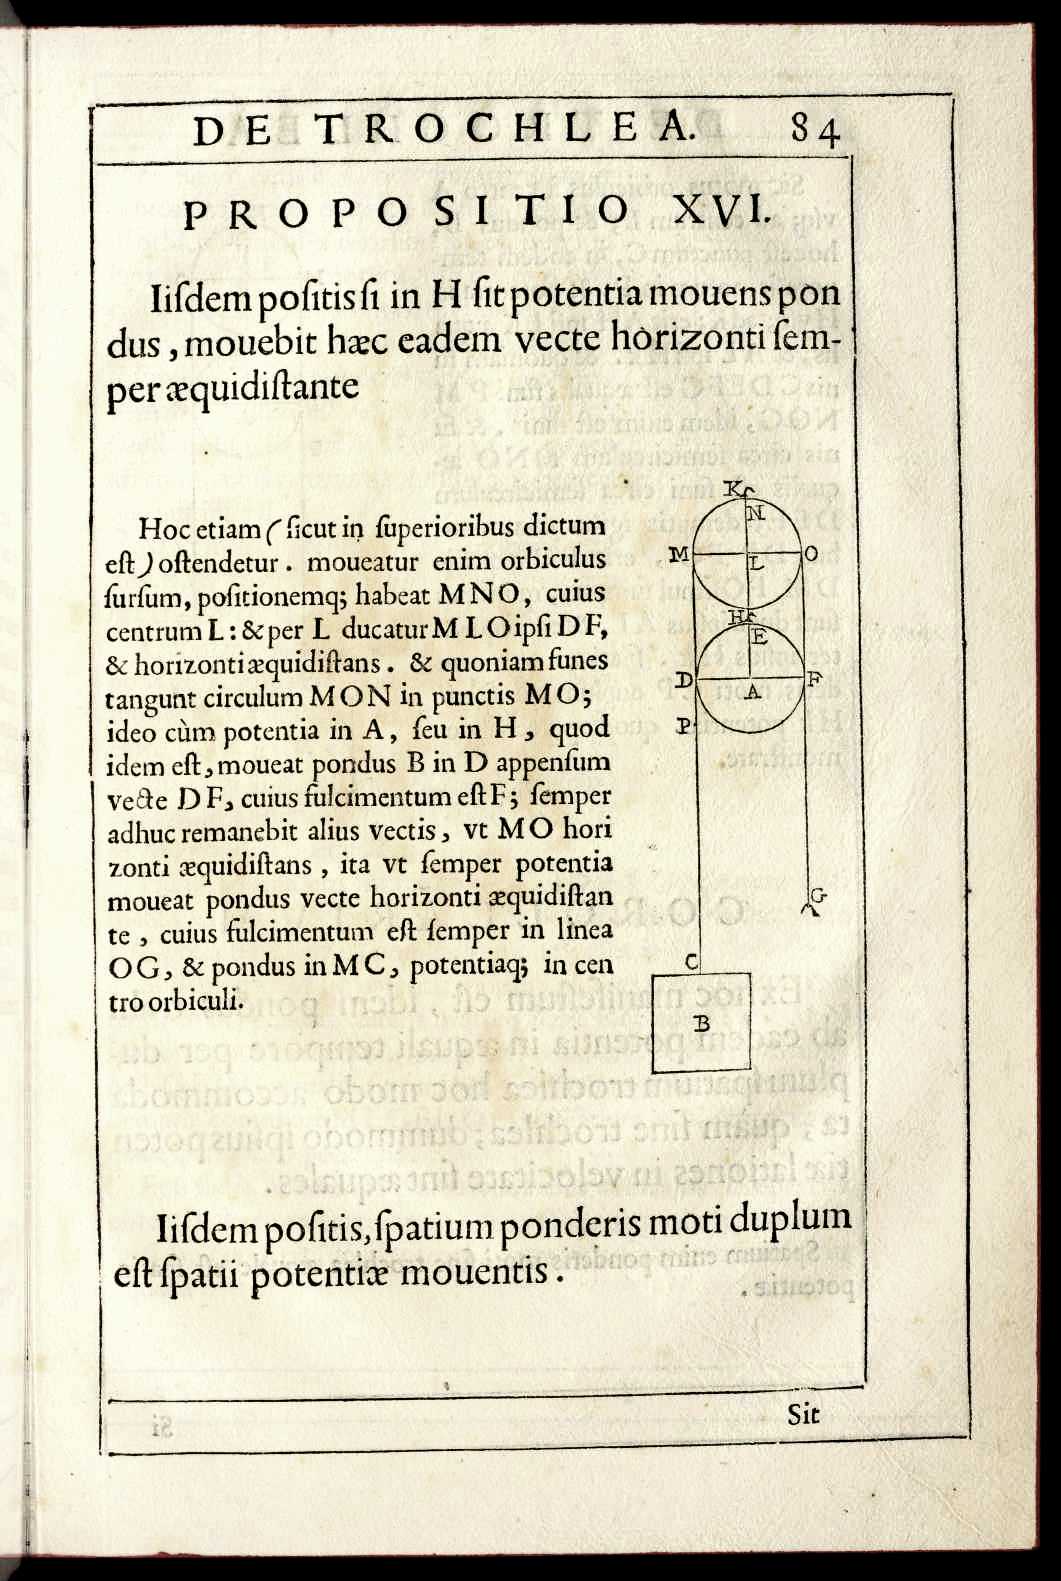 DE TROCHLEA. 84
PROPOSITIO XVI.
Iiſdem poſitis ſi in H ſit potentia mouens pon
dus, mouebit hæc eadem vecte horizonti ſem-
per æquidiſtante
Hoc etiam (ſicut in ſuperioribus dictum
eſt) oſtendetur. moueatur enim orbiculus
ſurſum, poſitionemq; habeat MNO, cuius
centrum L: & per L ducatur MLO ipſi DF,
& horizonti æquidiſtans. & quoniam funes
tangunt circulum MON in punctis MO;
ideo cùm potentia in A, ſeu in H, quod
idem eſt, moueat pondus B in D appenſum
vecte DF, cuius fulcimentum eſt F; ſemper
adhuc remanebit alius vectis, vt MO hori
zonti æquidiſtans, ita vt ſemper potentia
moueat pondus vecte horizonti æquidiſtan
te, cuius fulcimentum eſt ſemper in linea
OG, & pondus in MC, potentiaq; in cen
tro orbiculi.
K
N
M
L
O
H
E
D
A
F
P
G
C
B
Iiſdem poſitis, ſpatium ponderis moti duplum
eſt ſpatii potentiæ mouentis.
Sit